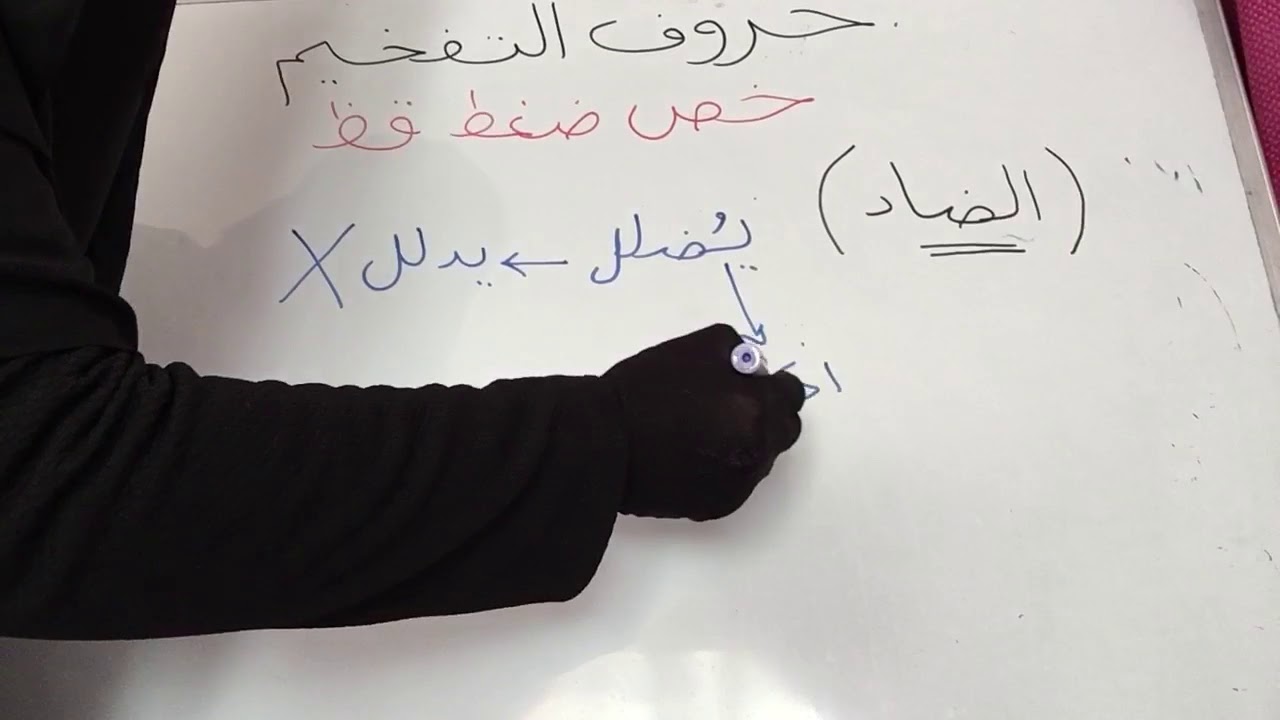 حروف التفخيم
خص ضغط قظ
(الضاد)
يُضلل ← يدلل X